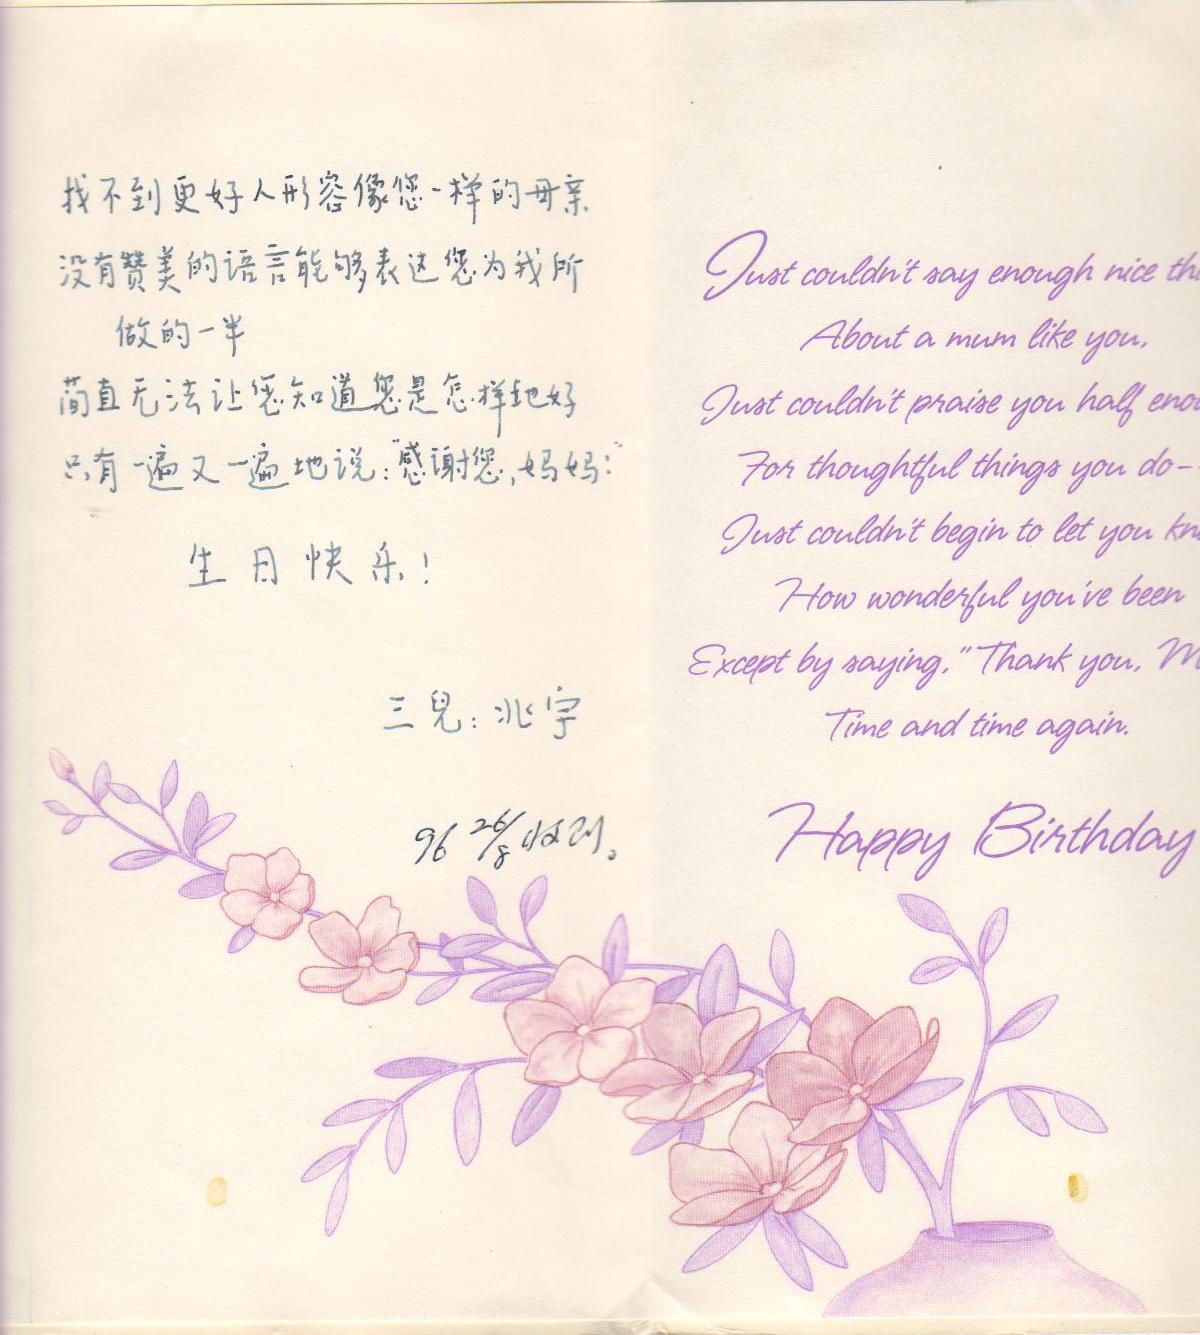 找不到更好人形容像您一样的母亲
没有赞美的语言能够表达您为我所
做的一半
简直无法让您知道您是怎样地好
只有一遍又一遍地说:"感谢您,妈妈:"
生日快乐!
三兒:兆宇
96 26/8 收到。
Just couldn't say enough nice
About a mum like you,
Just couldn't praise you half
For thoughtful things you do--
Just couldn't begin to let you
How wonderful you've been
Except by saying, "Thank you,
Time and time again.
Happy Birthday